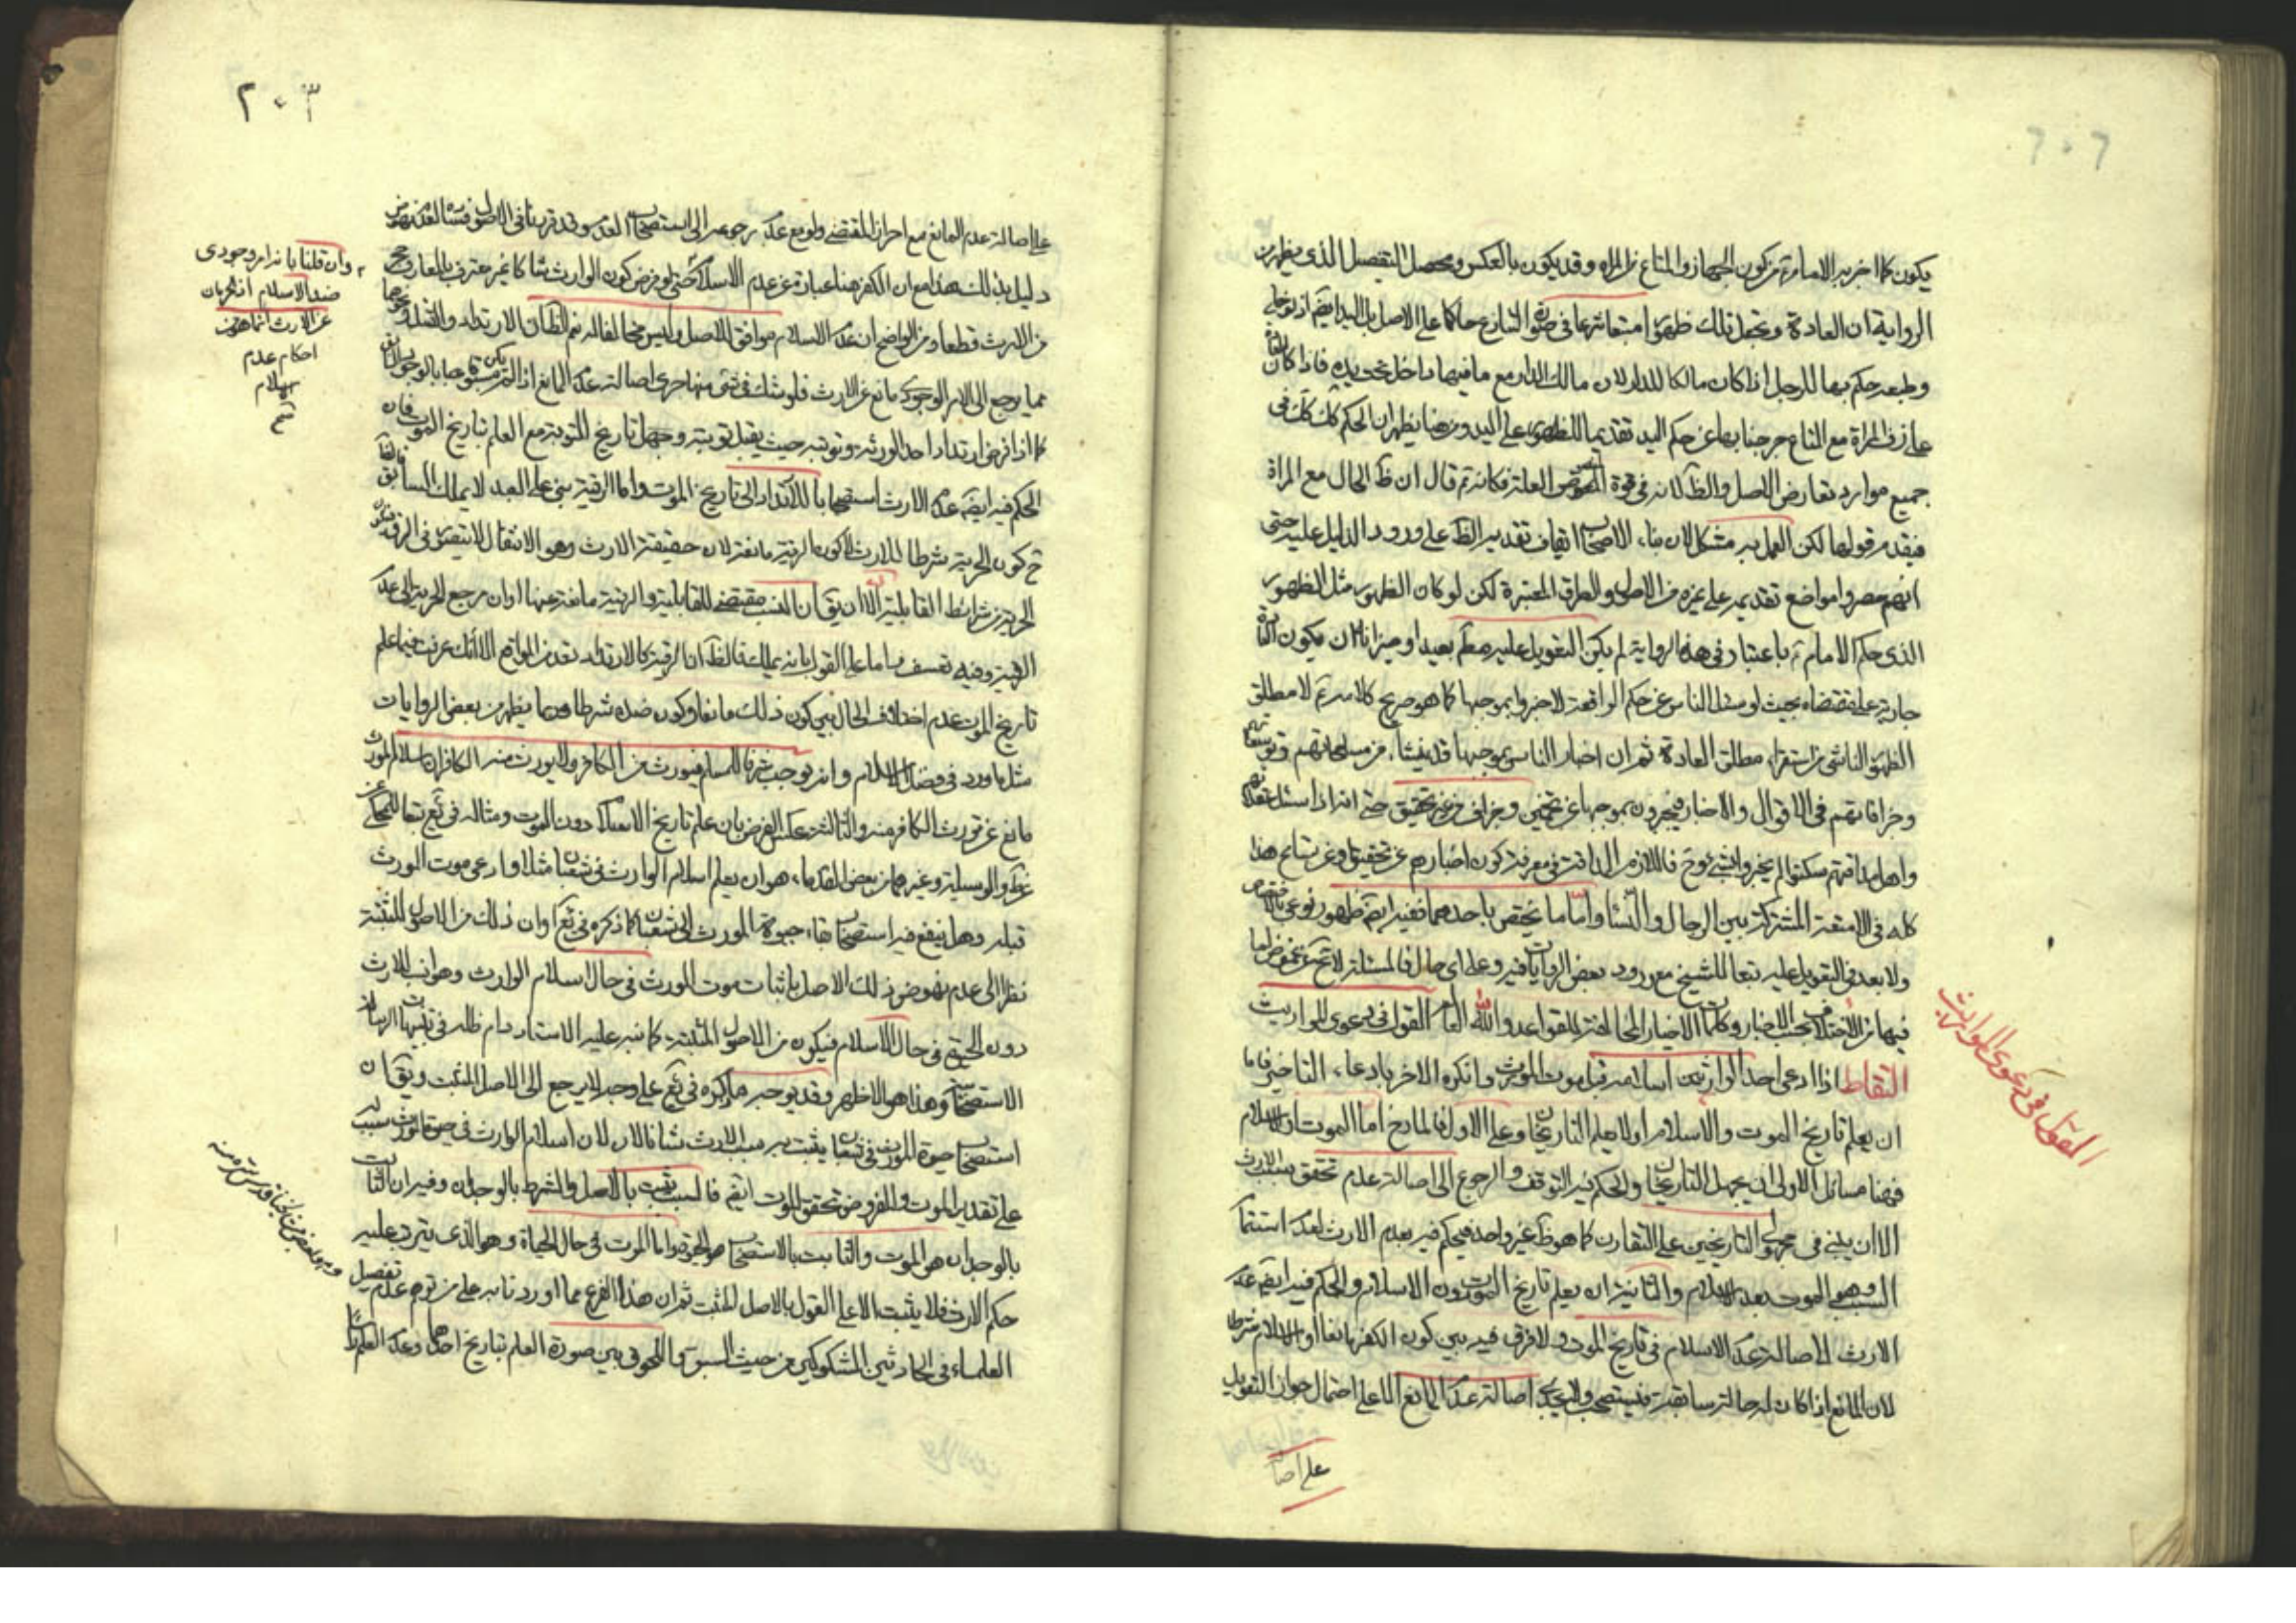 ٢٠٢
يكون كما اخبر به الامام من كون الجهاز والمتاع من المراة وقد يكون بالعكس ومحصل التفصيل الذى يظهر من
الرواية ان العادة وتحمل تلك ظهور امتعاتها فى صورة التنازع حاكما على الاصل بل اليد ايضا اذ
ولعله حكم بها للرجل اذا كان مالكا للدار لان مالك الدار مع ما فيها داخل تحت يده فاذا كان
على زفّ المراة مع المتاع خرجنا بها عن حكم اليد تقديما للظهور على اليد ومن هنا يظهر ان الحكم كك فى
جميع موارد تعارض الاصل والظ لانه فى قوة المنصوص العلة فكانه ع قال ان ظ الحال مع المراة
فيقدم قولها لكن العمل به مشكل لان بناء الاصحاب ايقاف تقديم الظ على ورود الدليل عليه حتى
انهم حصروا مواضع تقديمه على غيره من الاصل والطرق المعتبرة لكن لو كان الظهور مثل الظهور
الذى حكم الامام ع باعتباره فى هذه الرواية لم يكن التعويل عليه بعيدا وميزانه ان يكون العادة
جارية على مقتضاه بحيث لو سئل الناس عن حكم الواقعة لاخبروا بموجبها كما هو صريح كلامه ع لا مطلق
الظهور الناشى من استقراء مطلق العادة ثم ان اخبار الناس بموجبها قد ينشأ من مسامحاتهم
وخرافاتهم فى الاقوال والاخبار فيخبرون بموجبها عن تخمين وجزاف من غير تحقيق حتى انه اذا سئل
واهل مداقتهم سكتوا لم يخبروا بشئ وح فاللازم المداقة فى معرفة كون اخبارهم عن تحقيق وعن تسامح هذا
كله فى الامتعة المشتركة بين الرجال والنساء واما ما يختص باحدهما ففيه ايضا ظهور نوعى
ولا بعد فى التعويل عليه تبعا للشيخ مع ورود بعض الروايات فيه وعلى اى حال فالمسئلة لا تخ عن غموض لما
فيها من الاختلاف بحسب الاخبار وكلمات الاخيار المخالفة للقواعد والله العالم القول فى دعوى المواريث
التقاط اذا ادعى احد الوارثين اسلامه قبل موت المورث وانكره الاخر بادعاء التاخير فاما
ان يعلم تاريخ الموت والاسلام او لا يعلم التاريخان وعلى الاول فالمارخ اما الموت او الاسلام
فهنا مسائل الاولى ان يجهل التاريخان والحكم فيه التوقف والرجوع الى اصالة عدم تحقق سبب الارث
الا ان يبنى فى مجهولى التاريخين على التقارن كما هو ظ غير واحد فيحكم فيه بعدم الارث لعدم استتمام
السبب وهو الموت بعد الاسلام والثانية ان يعلم تاريخ الموت دون الاسلام والحكم فيه ايضا عدم
الارث لاصالة عدم الاسلام فى تاريخ الموت ولا فرق فيه بين كون الكفر مانعا او الاسلام شرطا
لان المانع اذا كان له حالة سابقة فيستصحب ولا يجرى اصالة عدم المانع الا على احتمال جواز التعويل
على اصا
القول فى دعوى المواريث
٢٠٣
على اصالة عدم المانع مع احراز المقتضى ولو مع عدم رجوعه الى استصحاب العدم وقد قررنا فى الاصول
دليل بذلك هذا مع ان الكفر هنا عبارة عن عدم الاسلام حتى لو فرض كون الوارث شاكا غير معترف بالمعارف خرج
من الارث قطعا ومن الواضح ان عدم الاسلام موافق للاصل وليس مخالفا له نعم الظ ان الارتداد والقتل ونحوهما
مما يرجع الى الامر الوجودى مانع عن الارث فلو شك فى شئ منها جرى اصالة عدم المانع اذا لم يكن مسبوقا بالوجود
كما اذا فرض ارتداد احد الورثة وتوبته حيث يقبل توبته وجهل تاريخ التوبة مع العلم بتاريخ الموت فان
الحكم فيه ايضا عدم الارث استصحابا للارتداد الى تاريخ الموت واما الرقية بنى على العبد لا يملك
ح كون الحرية شرطا للارث لا كون الرقية مانعة لان حقيقة الارث وهو الانتقال لا يتصور فى الرق
الحرية من شرائط القابلية الا ان يق ان النسب مقتضى للقابلية والرقية مانعة عنها او ان مرجع الحرية الى عدم
الرقية وفيه تعسف واما على القول بانه يملك فالظ ان الرقية كالارتداد تعد من الموانع الا انك عرفت فيما علم
تاريخ الموت عدم اختلاف الحال بين كون ذلك مانعا وكون ضده شرطا وربما يظهر من بعض الروايات
مثل ما ورد فى فضل الاسلام وانه يوجب شرفا للمسلم فيورث من الكافر ولا يورث منه الكافر ان اسلام المورث
مانع عن تورث الكافر منه والثالثة عكس الفرض بان علم تاريخ الاسلام دون الموت ومثاله فى يع تبعا للمحكى
عن ط والوسيلة وغيرهما من بعض القدماء هو ان يعلم اسلام الوارث فى شعبان مثلا وادعى موت المورث
قبله وهل ينفع فيه استصحاب بقاء حيوة المورث الى شعبان كما ذكره فى يع او ان ذلك من الاصول المثبتة
نظرا الى عدم نهوض ذلك الاصل باثبات موت المورث فى حال اسلام الوارث وهو سبب الارث
دون الحيوة فى حال الاسلام فيكون من الاصول المثبتة كما نبه عليه الاستاد دام ظله فى تنبيهات
الاستصحاب وهذا هو الاظهر وقد يوجه ما ذكره فى يع على وجه لا يرجع الى الاصل المثبت ويق ان
استصحاب حيوة المورث فى شعبان يثبت به سبب الارث شانا لان اسلام الوارث فى حيوة المورث سبب له
على تقدير الموت والمفروض تحقق الموت ايضا فالسبب يثبت بالاصل والشرط بالوجدان وفيه ان الثابت
بالوجدان هو الموت والثابت بالاستصحاب هو الحيوة واما الموت فى حال الحياة وهو الذى يترتب عليه
حكم الارث فلا يثبت الا على القول بالاصل المثبت ثم ان هذا الفرع مما اوردنا به على من توهم عدم تفصيل
العلماء فى الحادثين المشكوكين من حيث السبق واللحوق بين صورة العلم بتاريخ احدهما وعدم العلم
وان قلنا بانه امر وجودى
ضد الاسلام اذ الحرمان
عن الارث انما هو من
احكام عدم
الاسلام